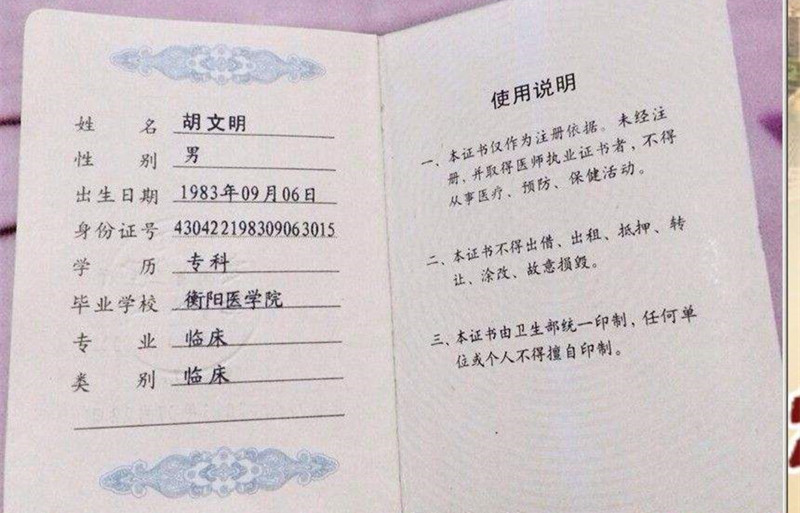 姓名 胡文明
性别 男
出生日期 1983年09月06日
身份证号 430422198309063015
学历 专科
毕业学校 衡阳医学院
专业 临床
类别 临床
使用说明
一、本证书仅作为注册依据。未经注
册,并取得医师执业证书者,不得
从事医疗、预防、保健活动。
二、本证书不得出借、出租、抵押、转
让、涂改、故意损毁。
三、本证书由卫生部统一印制,任何单
位或个人不得擅自印制。